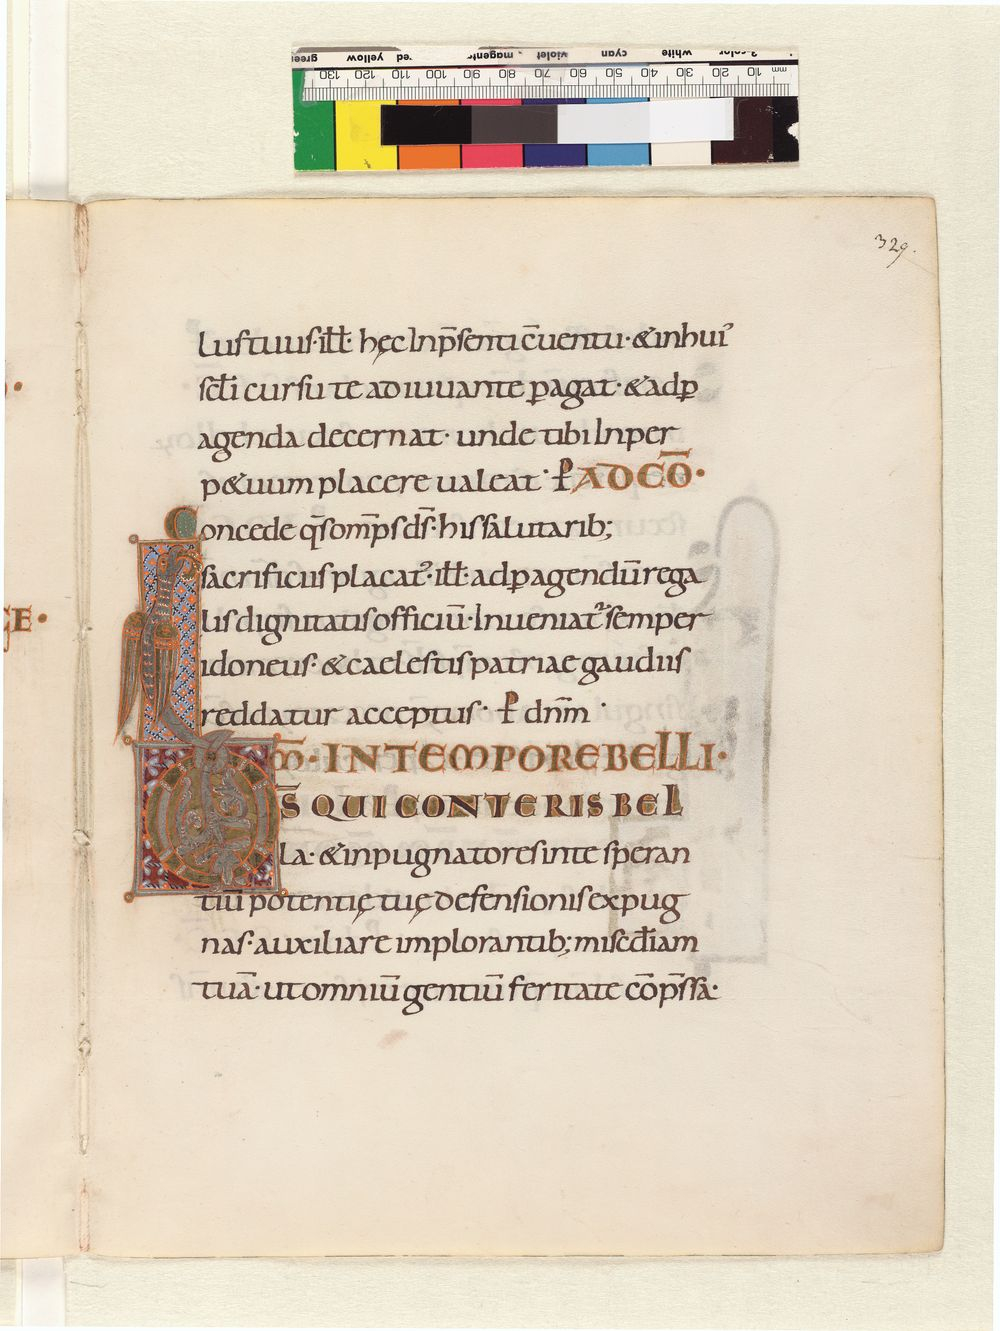 green yellow red magenta violet cyan white 3-color
130 120 110 100 90 80 70 60 50 40 30 20 10 mm
329.
lustuus·ill̄· hęc Inp̄senti c̄uentu·&inhui᾽
sc̄li cursu te adiuuante ꝑagat·&adꝑ
agenda decernat· unde tibi Inper
p&uum placere ualeat· ꝑ AD CŌ·
Concede q̄som̄ps ds̄· his salutarib;
sacrificiis placat᾽· ill̄· adꝑagendū rega
lis dignitatis officiū· Inueniat᾽ semper
idoneus· &caelestis patriae gaudiis
reddatur acceptus· ꝑ dnm̄·
M̄· IN TEMPORE BELLI·
DS̄ QUI CONTERIS BEL
la· &inpugnatores inte speran
tiū potentię tuę defensionis expug
nas· auxiliare implorantib; misc̄diam
GE·
tuā· ut omniū gentiū feritate cōp̄ssa·